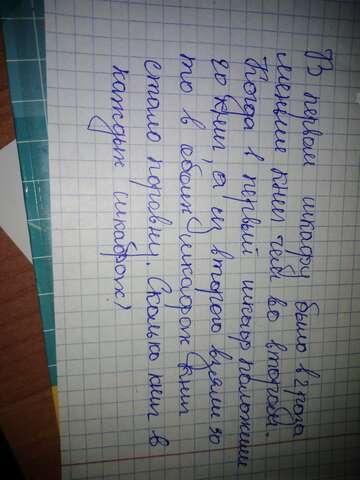 В первом шкафу было в 2 раза
меньше книг чем во втором.
Когда в первый шкаф положили
20 книг, а из второго взяли 30
то в обоих шкафах книг
стало поровну. Сколько книг в
каждых шкафах?